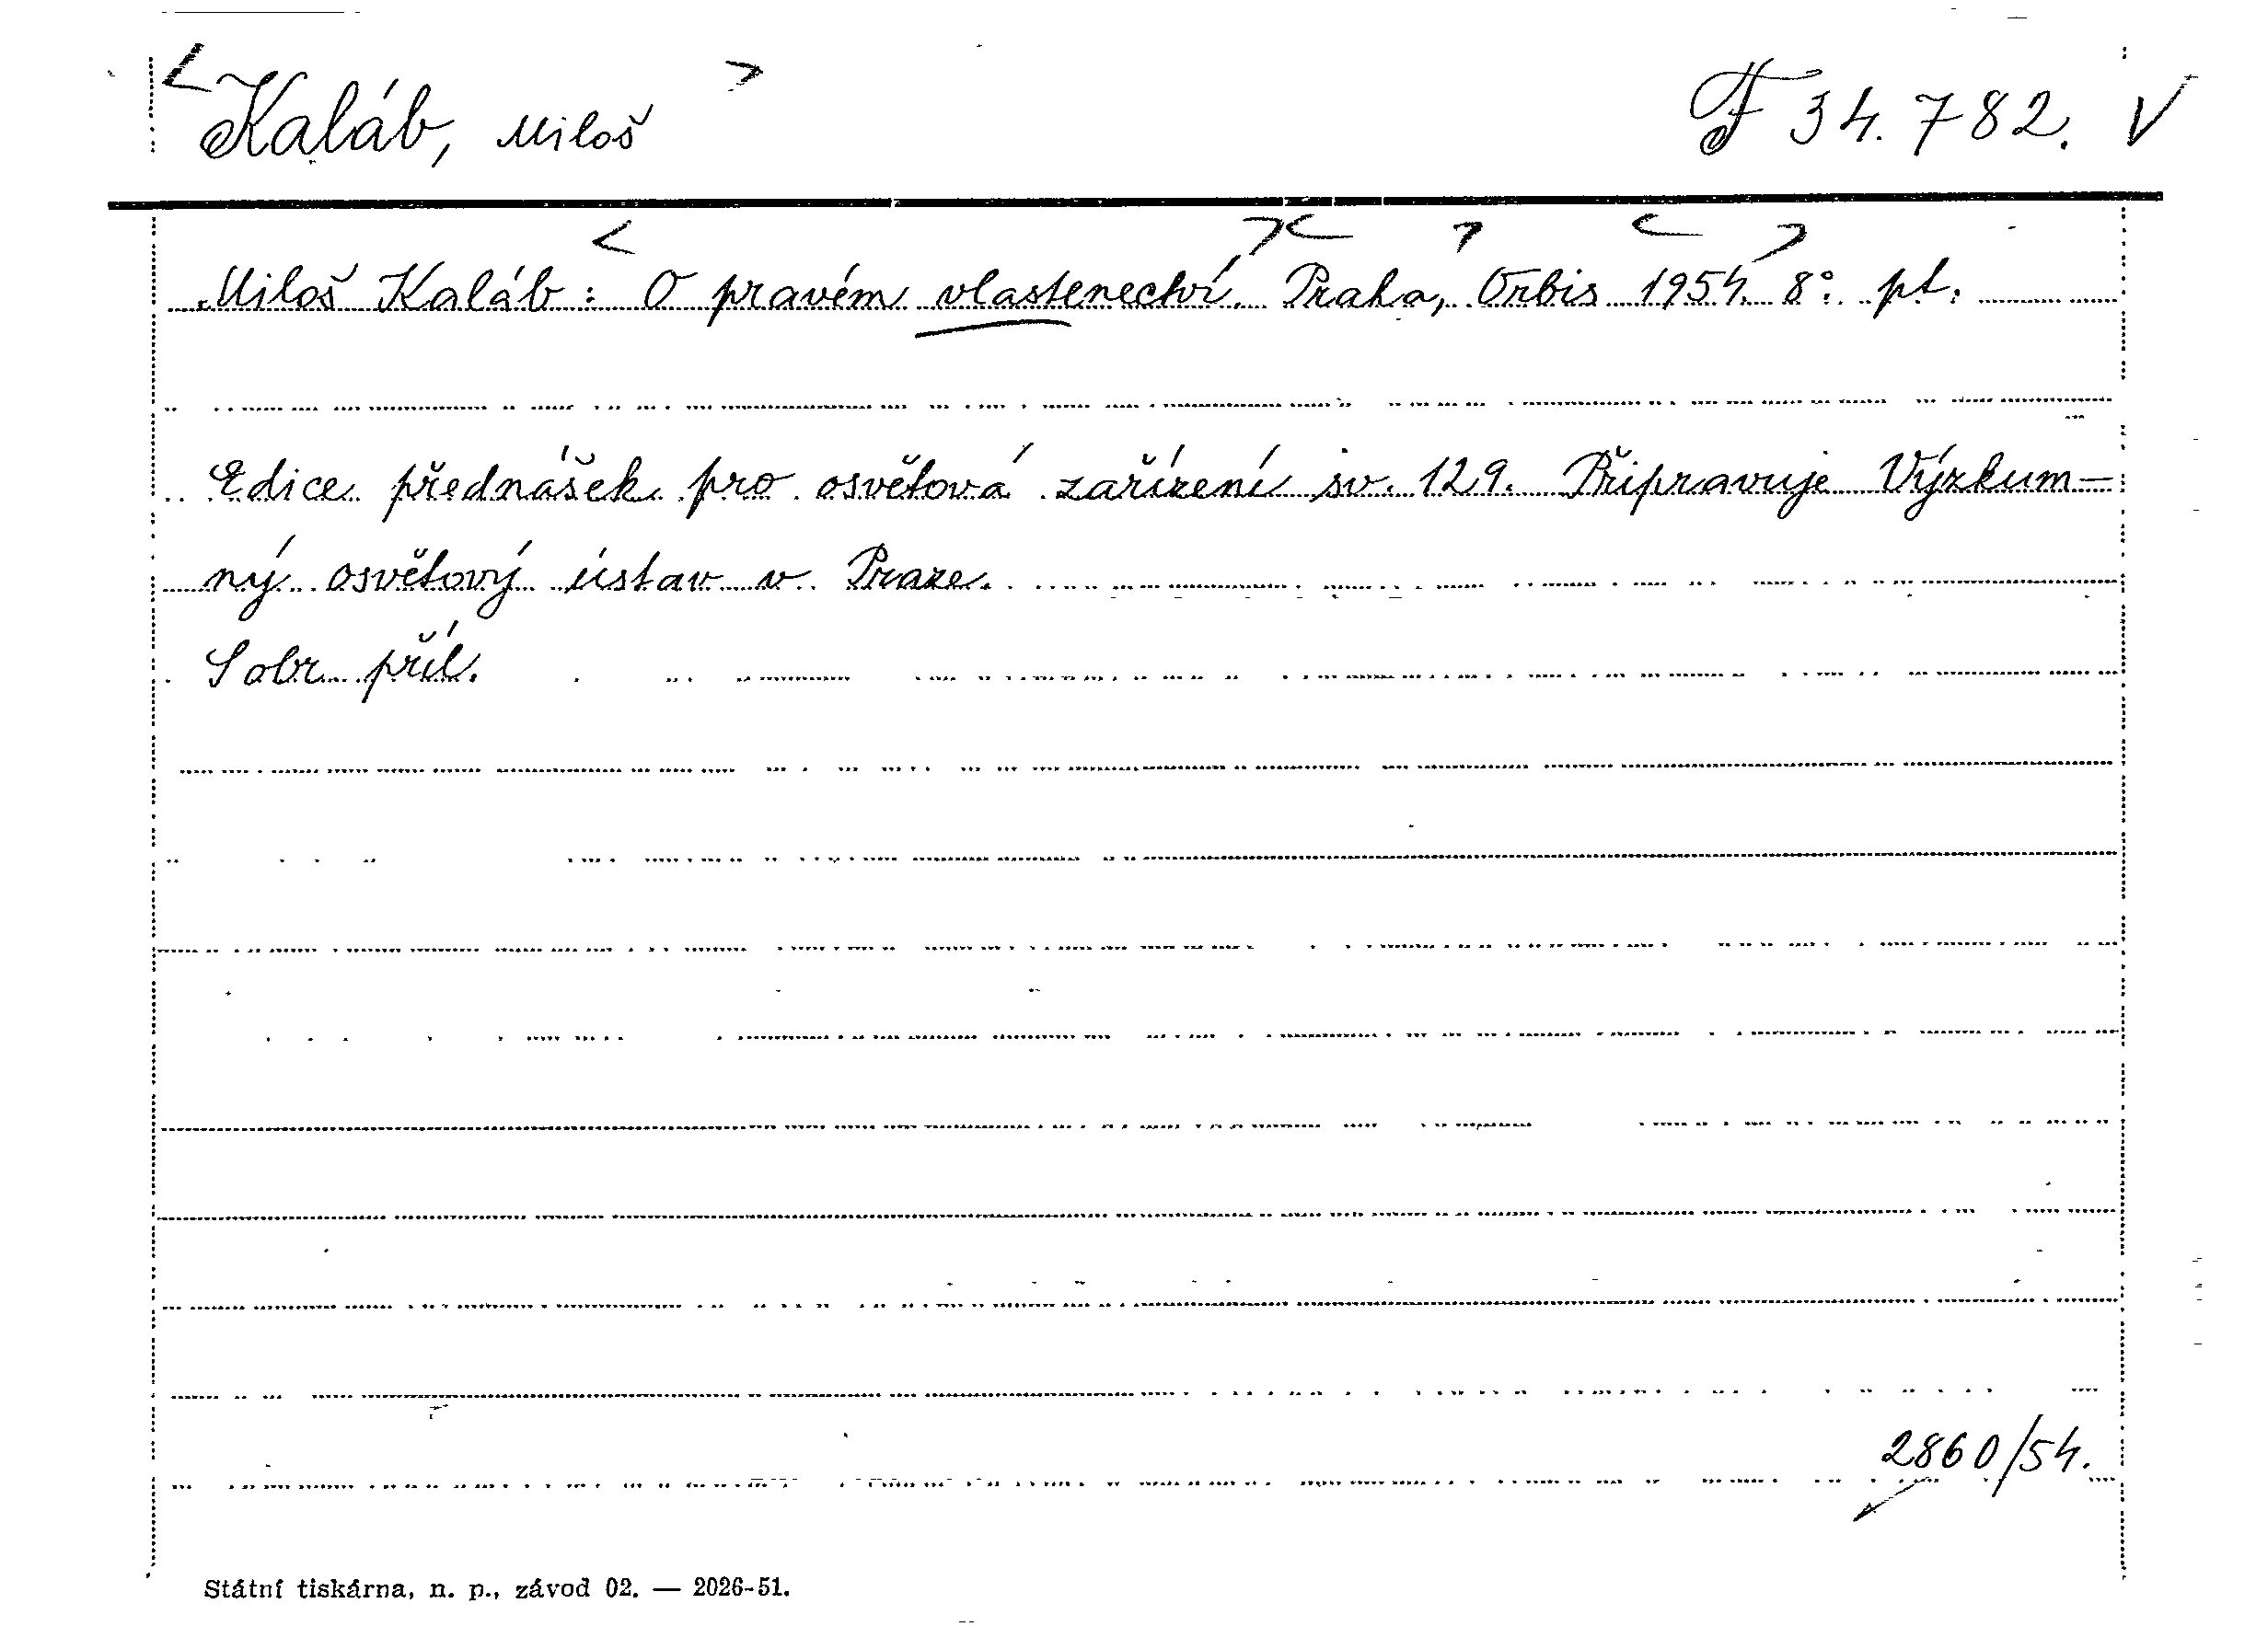 < Kaláb, Miloš > F 34.782. V
< > < > < >
Miloš Kaláb: O pravém vlastenectví. Praha, Orbis 1954. 8°. pt.
Edice přednášek pro osvětová zařízení sv. 129. Připravuje Výzkum-
ný osvětový ústav v Praze.
S obr. příl.
2860/54.
Státní tiskárna, n. p., závod 02. — 2026-51.